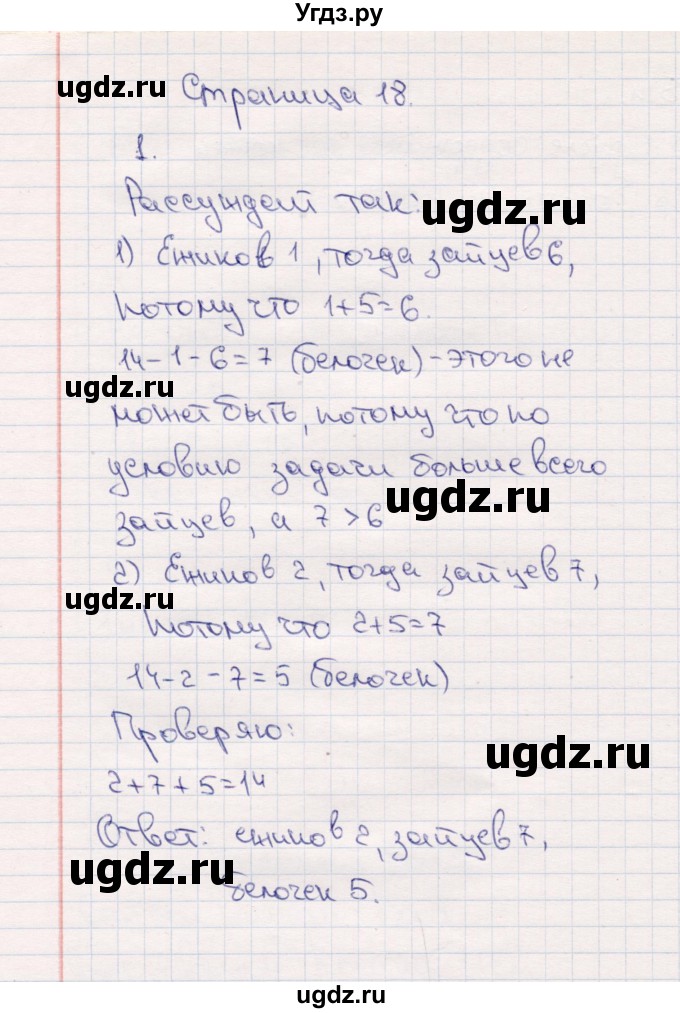 Угдз.ру
ugdz.ru Страница 18.
1.
Рассуждаем так: ugdz.ru
1) Ежиков 1, тогда зайцев 6,
потому что 1+5=6.
14-1-6=7 (белочек) - этого не
ugdz.ru
может быть, потому что по
условию задачи больше всего
ugdz.ru
зайцев, а 7>6
2) Ежиков 2, тогда зайцев 7,
ugdz.ru
потому что 2+5=7
14-2-7=5 (белочек)
Проверяю:
ugdz.ru
2+7+5=14
Ответ: ежиков 2, зайцев 7,
ugdz.ru
белочек 5.
ugdz.ru